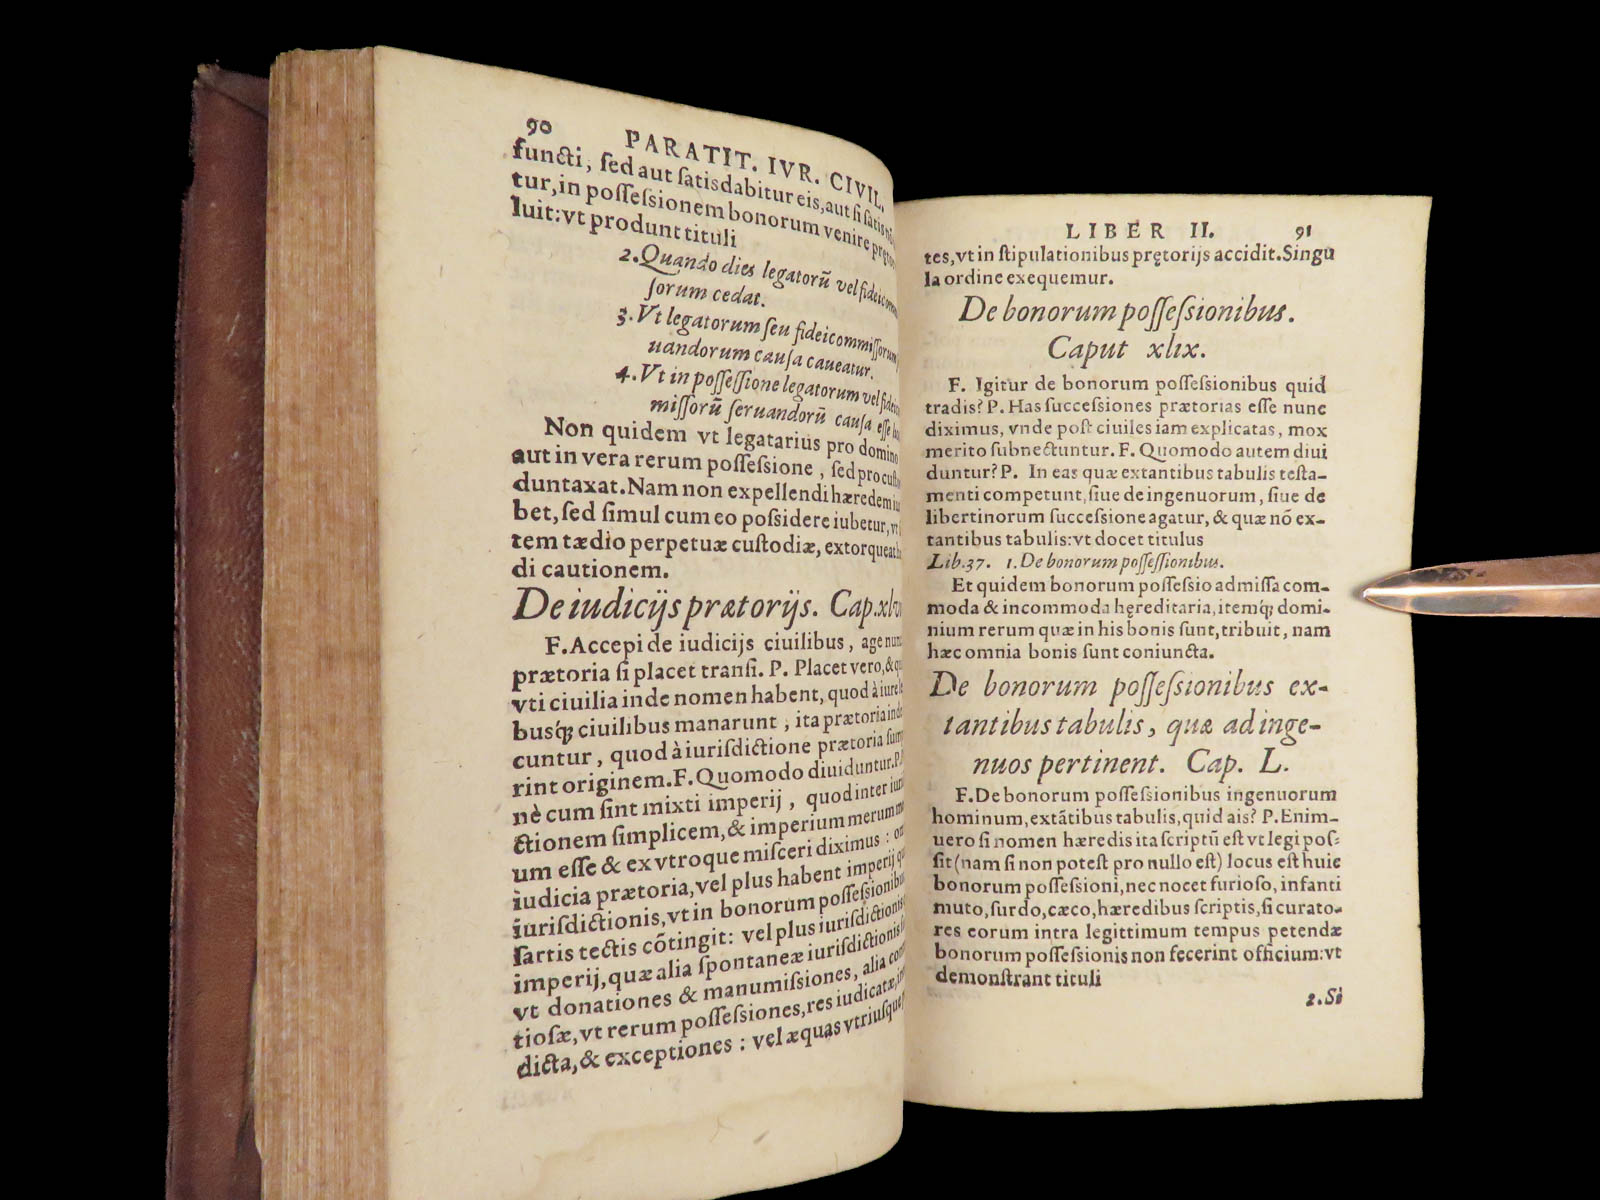 90 PARATIT. IVR. CIVIL.
functi, sed aut satisdabitur eis, aut si satis
tur, in possessionem bonorum venire prętor
luit: vt produnt tituli
2. Quando dies legatorũ vel fideicom
sorum cedat.
3. Vt legatorum seu fideicommissorum
uandorum causa caueatur.
4. Vt in possessione legatorum vel fideic
missorũ seruandorũ causa esse
Non quidem vt legatarius pro domino
aut in vera rerum possessione, sed pro
duntaxat. Nam non expellendi hæredem
bet, sed simul cum eo possidere iubetur, vt
tem tædio perpetuæ custodiæ, extorqueat
di cautionem.
De iudicijs prætorijs. Cap.
F. Accepi de iudicijs ciuilibus, age nunc
prætoria si placet transi. P. Placet vero, &
vti ciuilia inde nomen habent, quod à iure
busq́; ciuilibus manarunt, ita prætoria inde
cuntur, quod à iurisdictione prætoria
rint originem. F. Quomodo diuiduntur. P.
nè cum sint mixti imperij, quod inter
ctionem simplicem, & imperium merum
um esse & ex vtroque misceri diximus:
iudicia prætoria, vel plus habent imperij
iurisdictionis, vt in bonorum possessionibus
sartis tectis cõtingit: vel plus iurisdictionis
imperij, quæ alia spontaneæ iurisdictionis
vt donationes & manumissiones, alia
tiosæ, vt rerum possessiones, res iudicatæ,
dicta, & exceptiones: vel æquas vtriusque
LIBER II. 91
tes, vt in stipulationibus prętorijs accidit. Singu
la ordine exequemur.
De bonorum possessionibus.
Caput xlix.
F. Igitur de bonorum possessionibus quid
tradis? P. Has successiones prætorias esse nunc
diximus, vnde post ciuiles iam explicatas, mox
merito subnectuntur. F. Quomodo autem diui
duntur? P. In eas quæ extantibus tabulis testa-
menti competunt, siue de ingenuorum, siue de
libertinorum successione agatur, & quæ nõ ex-
tantibus tabulis: vt docet titulus
Lib. 37. 1. De bonorum possessionibus.
Et quidem bonorum possessio admissa com-
moda & incommoda hęreditaria, itemq́; domi-
nium rerum quæ in his bonis sunt, tribuit, nam
hæc omnia bonis sunt coniuncta.
De bonorum possessionibus ex-
tantibus tabulis, quæ ad inge-
nuos pertinent. Cap. L.
F. De bonorum possessionibus ingenuorum
hominum, extãtibus tabulis, quid ais? P. Enim-
uero si nomen hæredis ita scriptũ est vt legi pos-
sit (nam si non potest pro nullo est) locus est huic
bonorum possessioni, nec nocet furioso, infanti
muto, surdo, cæco, hæredibus scriptis, si curato-
res eorum intra legittimum tempus petendæ
bonorum possessionis non fecerint officium: vt
demonstrant tituli
2. Si